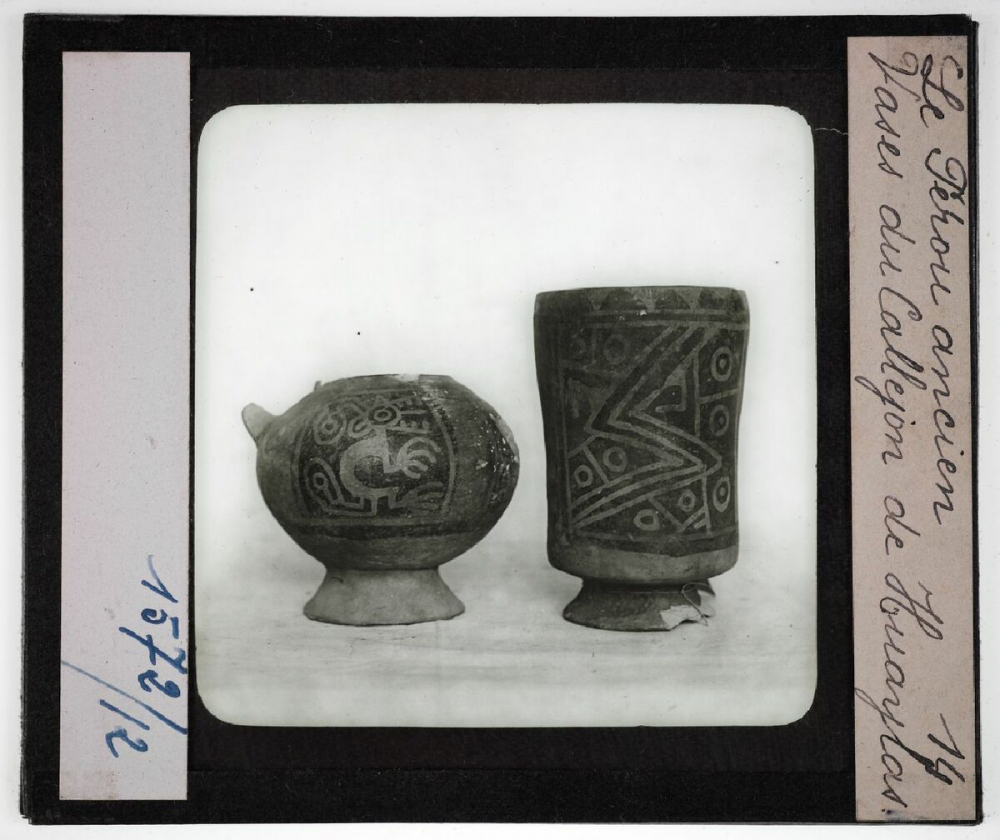 Le Pérou ancien H. 14
Vases du Callejon de Huaylas.
1572/12